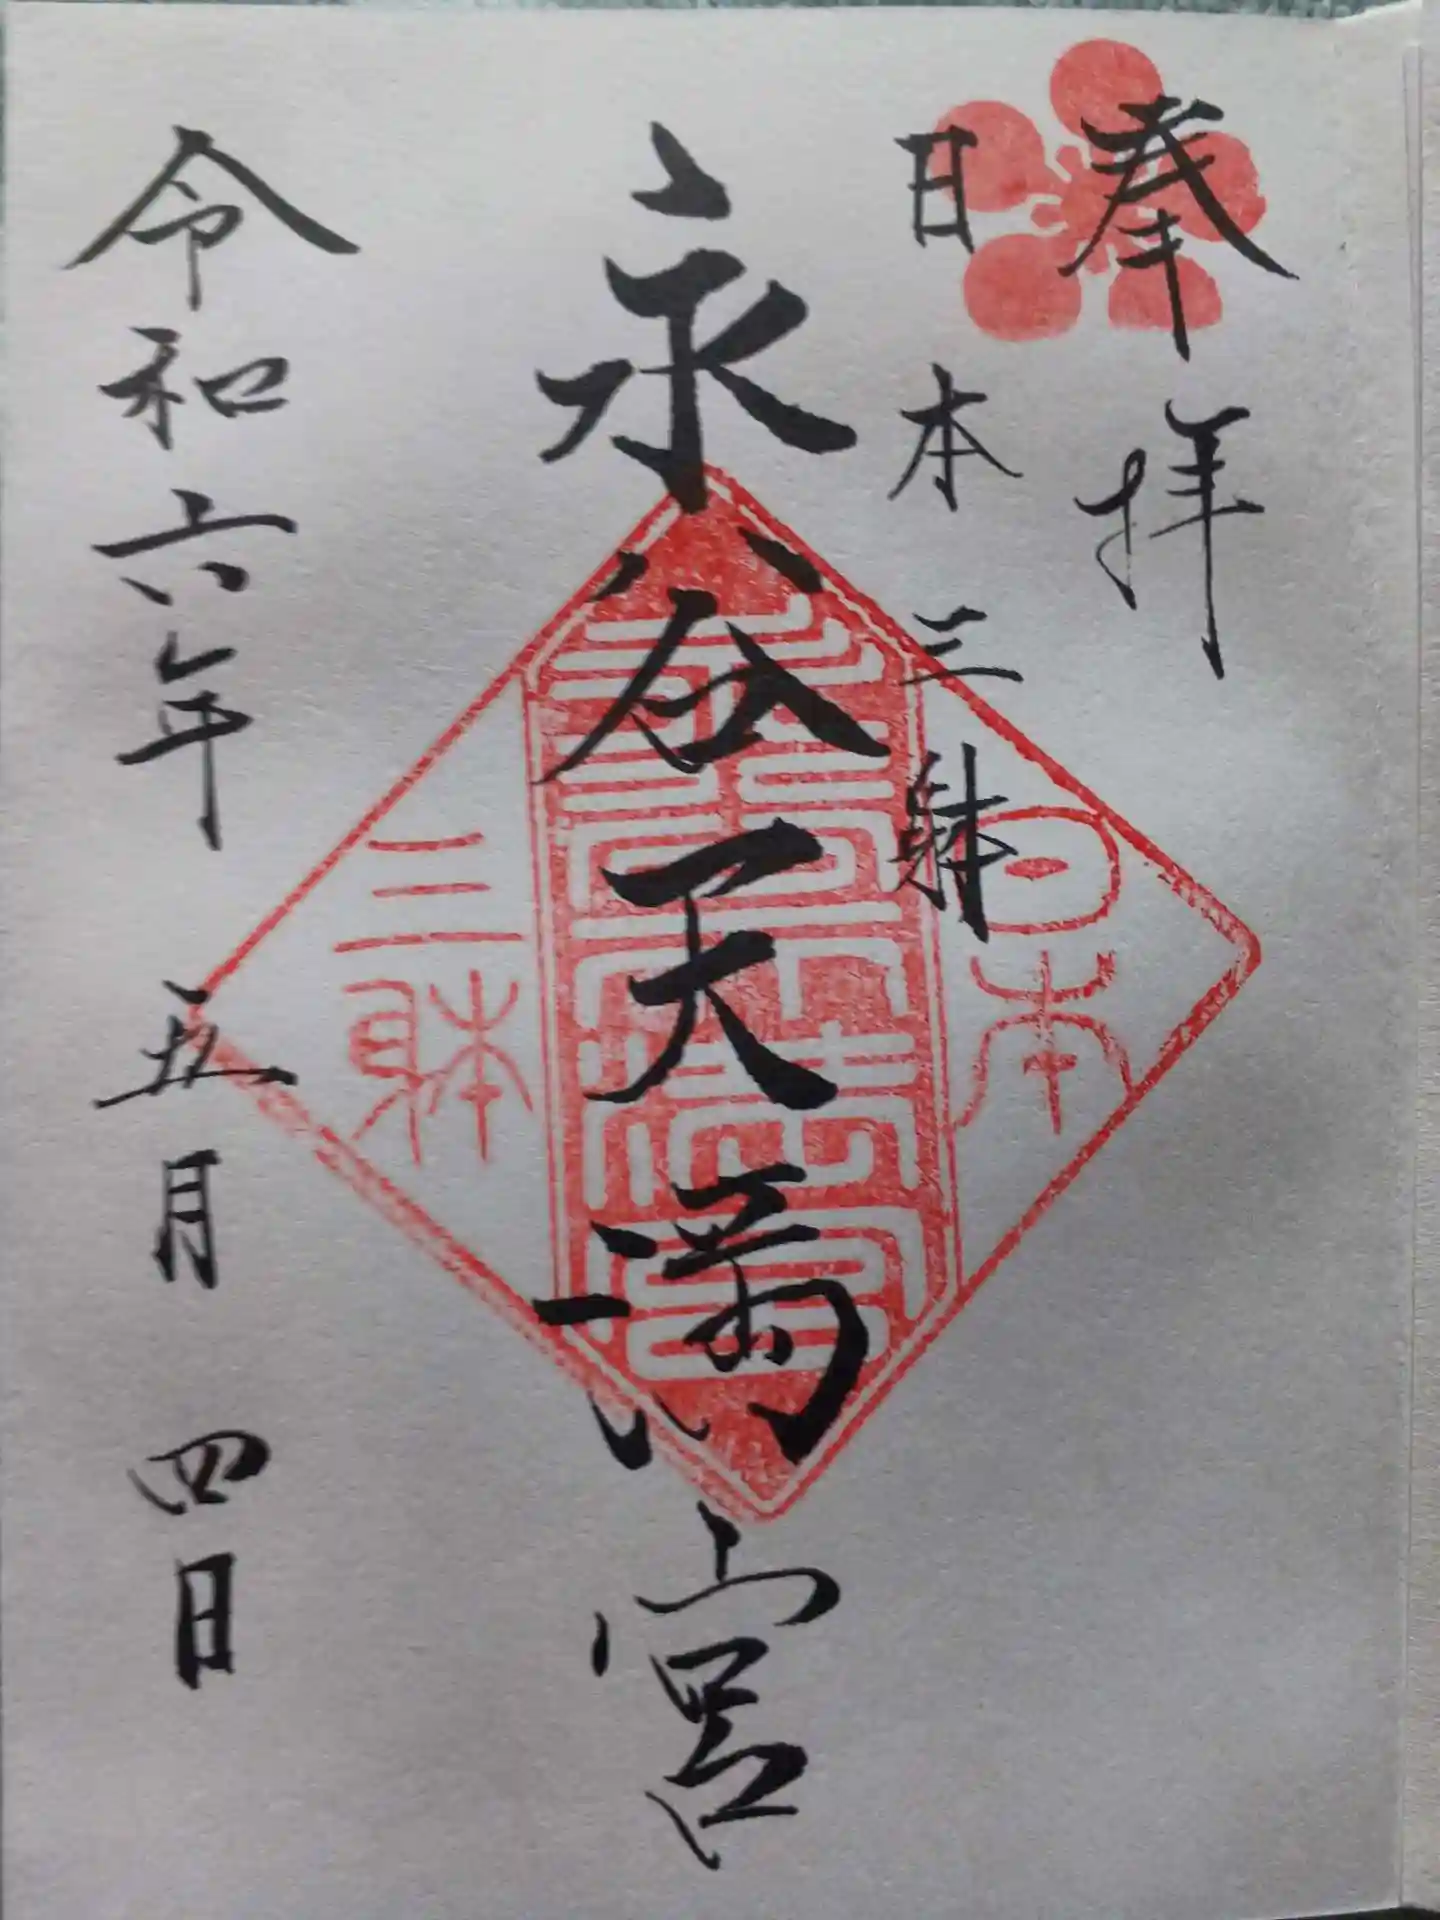 奉拝
日本三躰
永谷天満宮
日本
三躰
永谷天満宮
令和六年五月四日